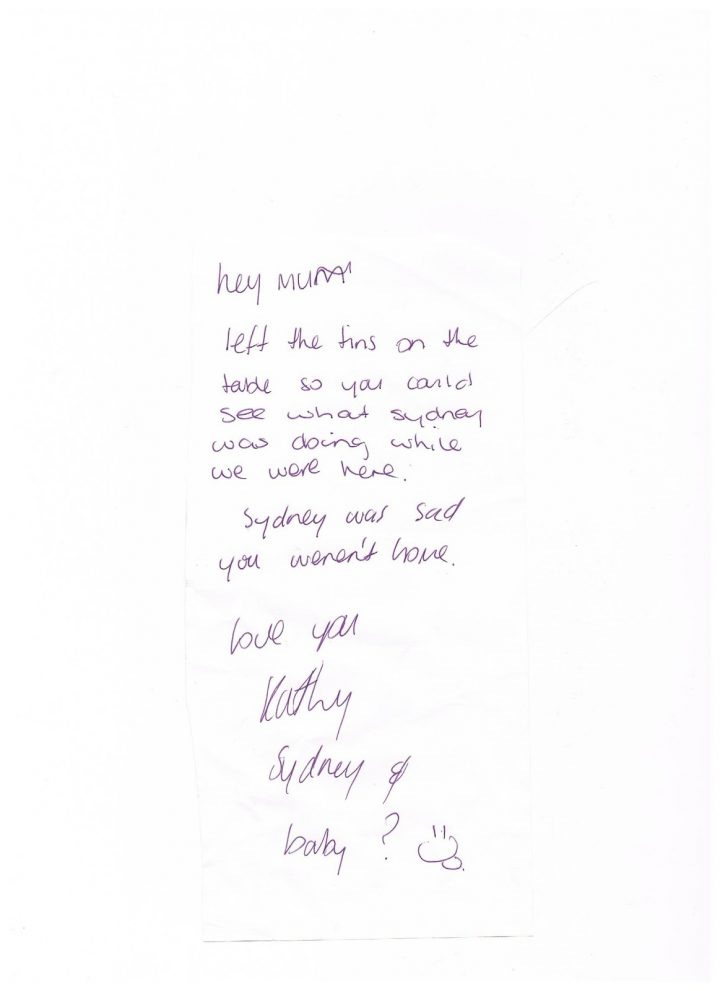 hey MUM
left the tins on the
table so you could
see what sydney
was doing while
we were here.
Sydney was sad
you weren't home.
love you
Kathy
Sydney &
baby ?